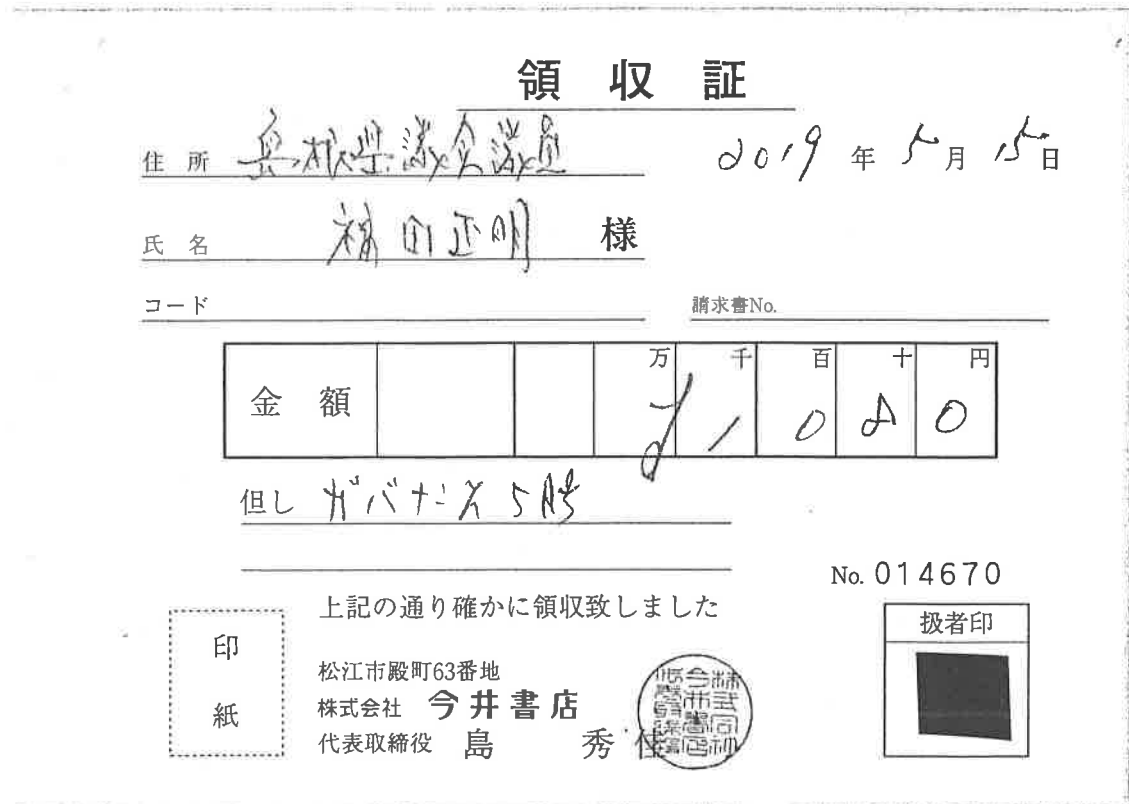 領収証
住所 島根県議会議員 2019年5月15日
氏名 福田正明 様
コード 請求書No.
金額 万 千 百 十 円
¥1080
但し ガバナンス 5月号
No. 014670
上記の通り確かに領収致しました
印紙
扱者印
松江市殿町63番地
株式会社 今井書店
代表取締役 島 秀佳